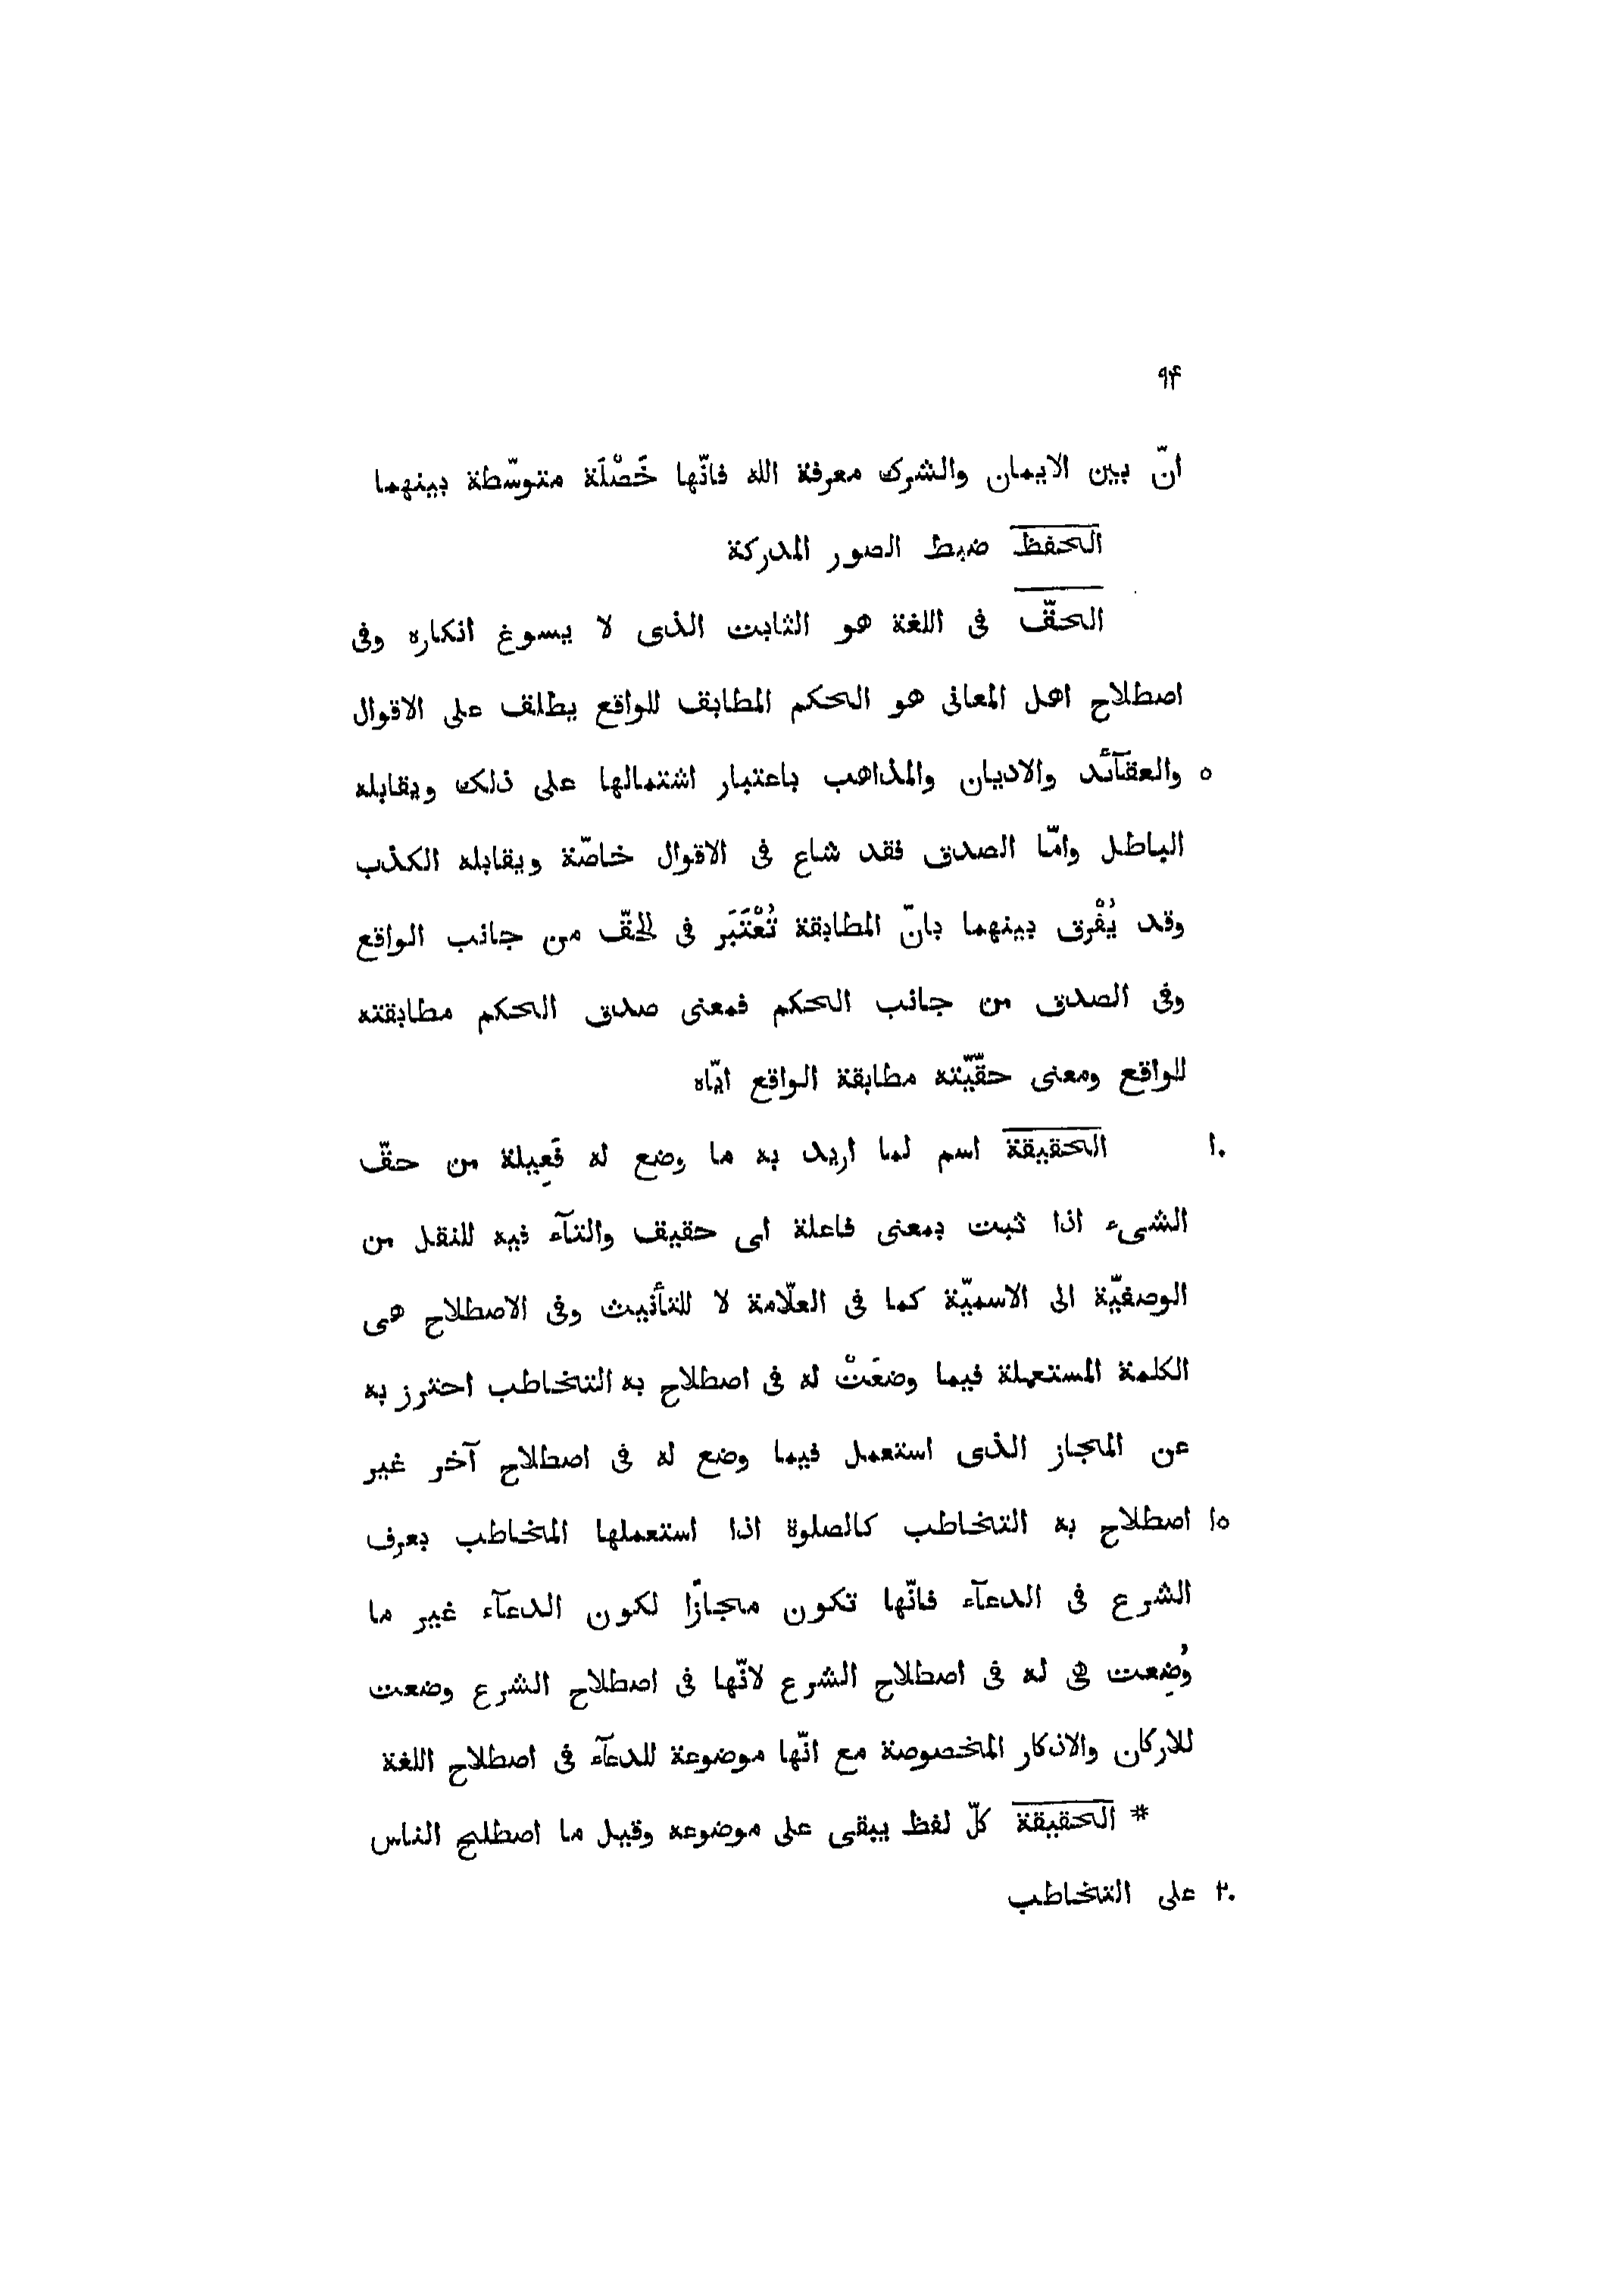 ٩۴
انّ بين الايمان والشرك معرفة الله فانّها خَصْلَة متوسّطة بينهما
الحفظ ضبط الصور المدركة
الحقّ فى اللغة هو الثابت الذى لا يسوغ انكاره وفى
اصطلاح اهل المعانى هو الحكم المطابق للواقع يطلق على الاقوال
٥ والعقآئد والاديان والمذاهب باعتبار اشتمالها على ذلك ويقابله
الباطل وامّا الصدق فقد شاع فى الاقوال خاصّة ويقابله الكذب
وقد يُفْرق بينهما بانّ المطابقة تُعْتَبَر فى الحقّ من جانب الواقع
وفى الصدق من جانب الحكم فمعنى صدق الحكم مطابقته
للواقع ومعنى حقّيّته مطابقة الواقع ايّاه
١٠ الحقيقة اسم لما اريد به ما وضع له فَعِيلة من حقّ
الشىء اذا ثبت بمعنى فاعلة اى حقيق والتآء فيه للنقل من
الوصفيّة الى الاسميّة كما فى العلّامة لا للتأنيث وفى الاصطلاح هى
الكلمة المستعملة فيما وضعَتْ له فى اصطلاح به التخاطب احترز به
عن المجاز الذى استعمل فيما وضع له فى اصطلاح آخر غير
١٥ اصطلاح به التخاطب كالصلوة اذا استعملها المخاطب بعرف
الشرع فى الدعآء فانّها تكون مجازًا لكون الدعآء غير ما
وُضِعت هى له فى اصطلاح الشرع لانّها فى اصطلاح الشرع وضعت
للاركان والاذكار المخصوصة مع انّها موضوعة للدعآء فى اصطلاح اللغة
* الحقيقة كلّ لفظ يبقى على موضوعه وقيل ما اصطلح الناس
٢٠ على التخاطب